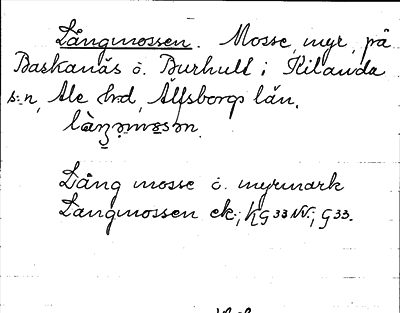 Långmossen. Mosse, myr, på
Baskanäs o. Burhult i Kilanda
s:n, Ale hrd, Älfsborgs län.
Lång mosse o. myrmark
Langmossen ek; KG 33 NV; G 33.